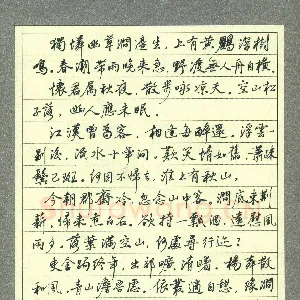 獨憐幽草澗邊生，上有黄鸝深樹
鳴。春潮帶雨晚来急，野渡無人舟自横。
懷君屬秋夜，散步咏凉天。空山松
子落，幽人應未眠。
江漢曾為客，相逢每醉還。浮雲一
别後，流水十年间。歡笑情如舊，蕭疎
鬓已斑。何因不歸去，淮上有秋山。
今朝郡齋冷，忽念山中客。澗底束荆
薪，歸来煮白石。欲持一瓢酒，遠慰風
雨夕。落葉滿空山，何處尋行迹？
吏舍跼終年，出郊曠清曙。楊柳散
和風，青山澹吾慮。依叢適自憩，緣澗